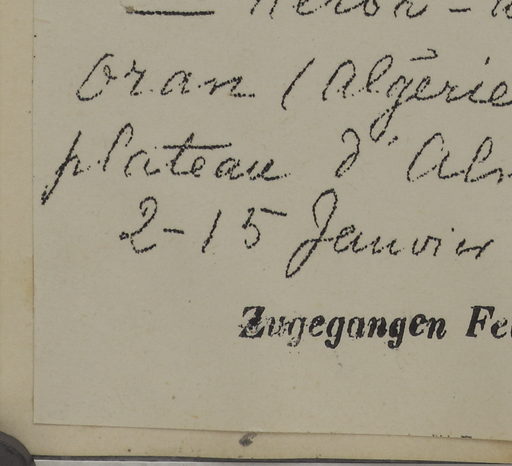 Oran (Algérie
plateau d'
2-15 Janvier
Zugegangen